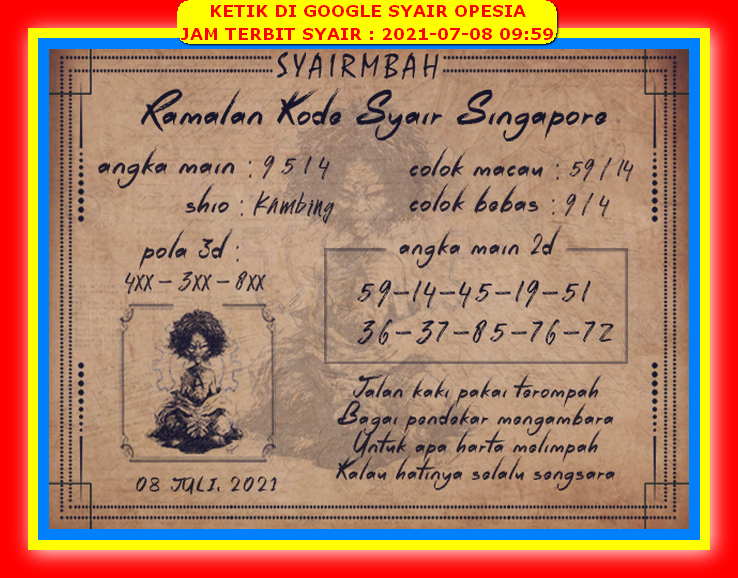 KETIK DI GOOGLE SYAIR OPESIA
JAM TERBIT SYAIR : 2021-07-08 09:59
SYAIRMBAH
Ramalan Kode Syair Singapore
angka main : 9 5 1 4
colok macau : 59 / 14
shio : Kambing
colok bebas : 9 / 4
pola 3d :
4XX - 3XX - 8XX
angka main 2d
59-14-45-19-51
36-37-85-76-72
Jalan kaki pakai terompah
Bagai pendekar mengambara
Untuk apa harta melimpah
Kalau hatinya selalu sengsara
08 JULI. 2021